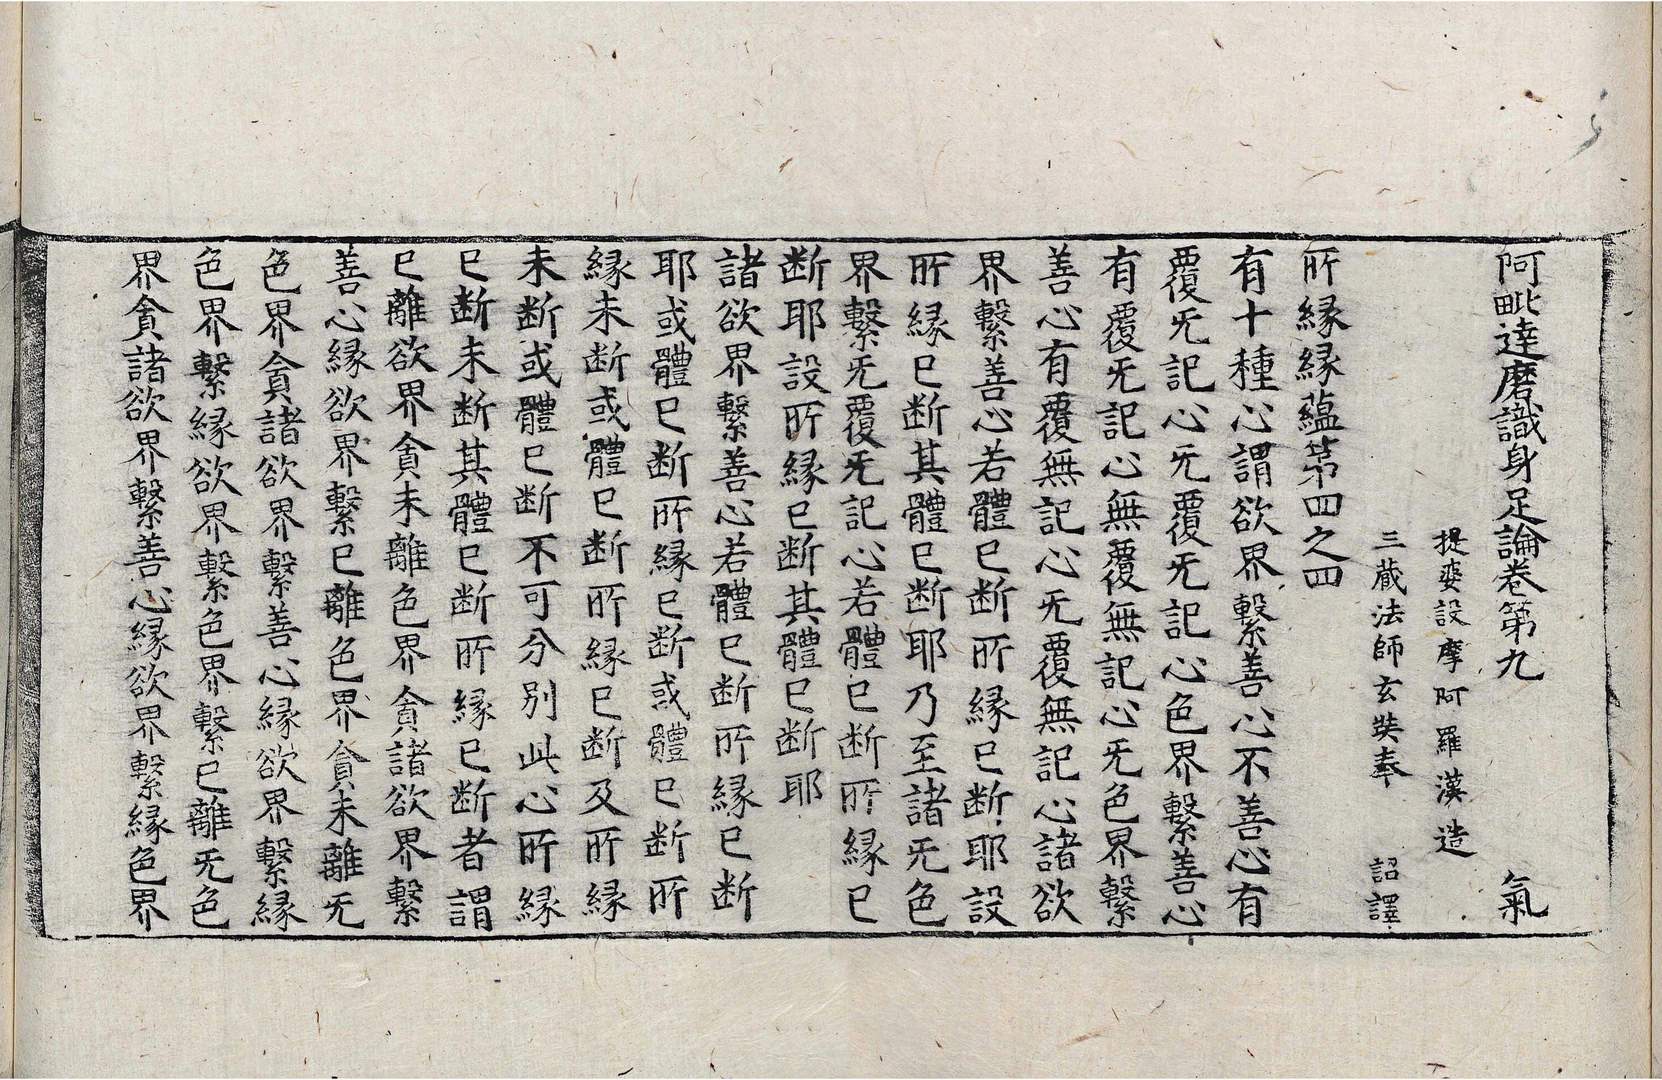 阿毗達磨識身足論卷第九　氣
提婆設摩阿羅漢造
三藏法師玄奘奉　詔譯
所緣緣蘊第四之四
有十種心謂欲界繫善心不善心有
覆无記心无覆无記心色界繫善心
有覆无記心無覆無記心无色界繫
善心有覆無記心无覆無記心諸欲
界繫善心若體已断所緣已断耶設
所緣已断其體已断耶乃至諸无色
界繫无覆无記心若體已断所緣已
断耶設所緣已断其體已断耶
諸欲界繫善心若體已断所緣已断
耶或體已断所緣已断或體已断所
緣未断或體已断所緣已断及所緣
未断或體已断不可分別此心所緣
已断未断其體已断所緣已断者謂
已離欲界貪未離色界貪諸欲界繫
善心緣欲界繫已離色界貪未離无
色界貪諸欲界繫善心緣欲界繫緣
色界繫緣欲界繫色界繫已離无色
界貪諸欲界繫善心緣欲界繫緣色界